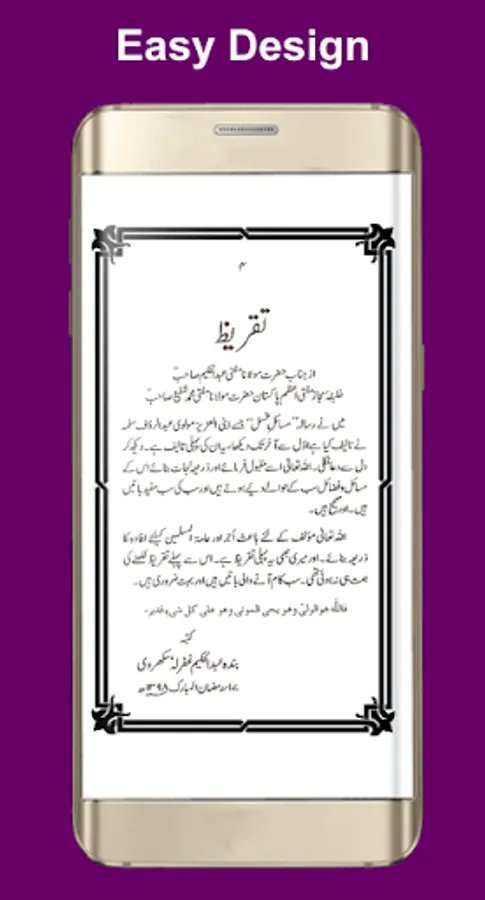 Easy Design
۴
تقریظ
از جناب حضرت مولانا مفتی عبدالحکیم صاحبؒ
خلیفہ مجاز مفتی اعظم پاکستان حضرت مولانا مفتی محمد شفیع صاحبؒ
میں نے رسالہ "مسائل غسل" جسے اپنی العزیز مولوی عبدالرؤف سلمہ
نے تالیف کیا ہے اوّل سے آخر تک دیکھا، یہ ان کی پہلی تالیف ہے۔ دیکھ کر
دل سے دعا نکلی۔ اللہ تعالیٰ اسے مقبول فرمائے اور ذریعہ نجات بنائے اس کے
مسائل وفضائل سب کے حوالے دیے ہوئے ہیں اور سب کی سب مفید باتیں
ہیں۔ اور صحیح ہیں۔
اللہ تعالیٰ مؤلف کے لئے باعث اجر اور عامۃ المسلمین کیلئے افادہ کا
ذریعہ بنائے۔ اور میری بھی یہ پہلی تقریظ ہے۔ اس سے پہلے تقریظ لکھنے کی
ہمت ہی نہ ہوئی تھی۔ سب کام آنے والی باتیں ہیں اور بہت ضروری ہیں۔
فاللہ هو الولی وهو یحی الموتی وهو علی کل شیء قدیر۔
کتبہ
بندہ عبدالحکیم غفرلہٗ سکھروی
رمضان المبارک ۱۳۹۸ھ